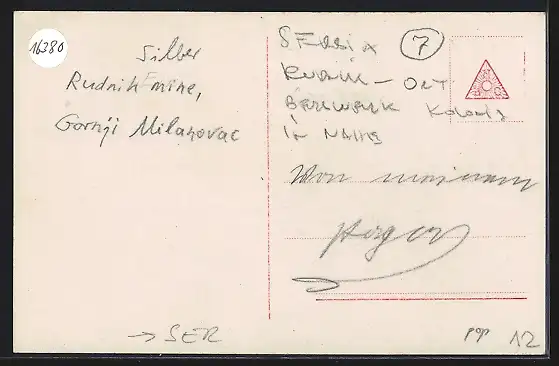 16380
Silber
Rudnik mine,
Gornji Milanovac
SERBIA 7
Rudnik - ORT
BERGWERK
IN
Von
→ SER
pop 12